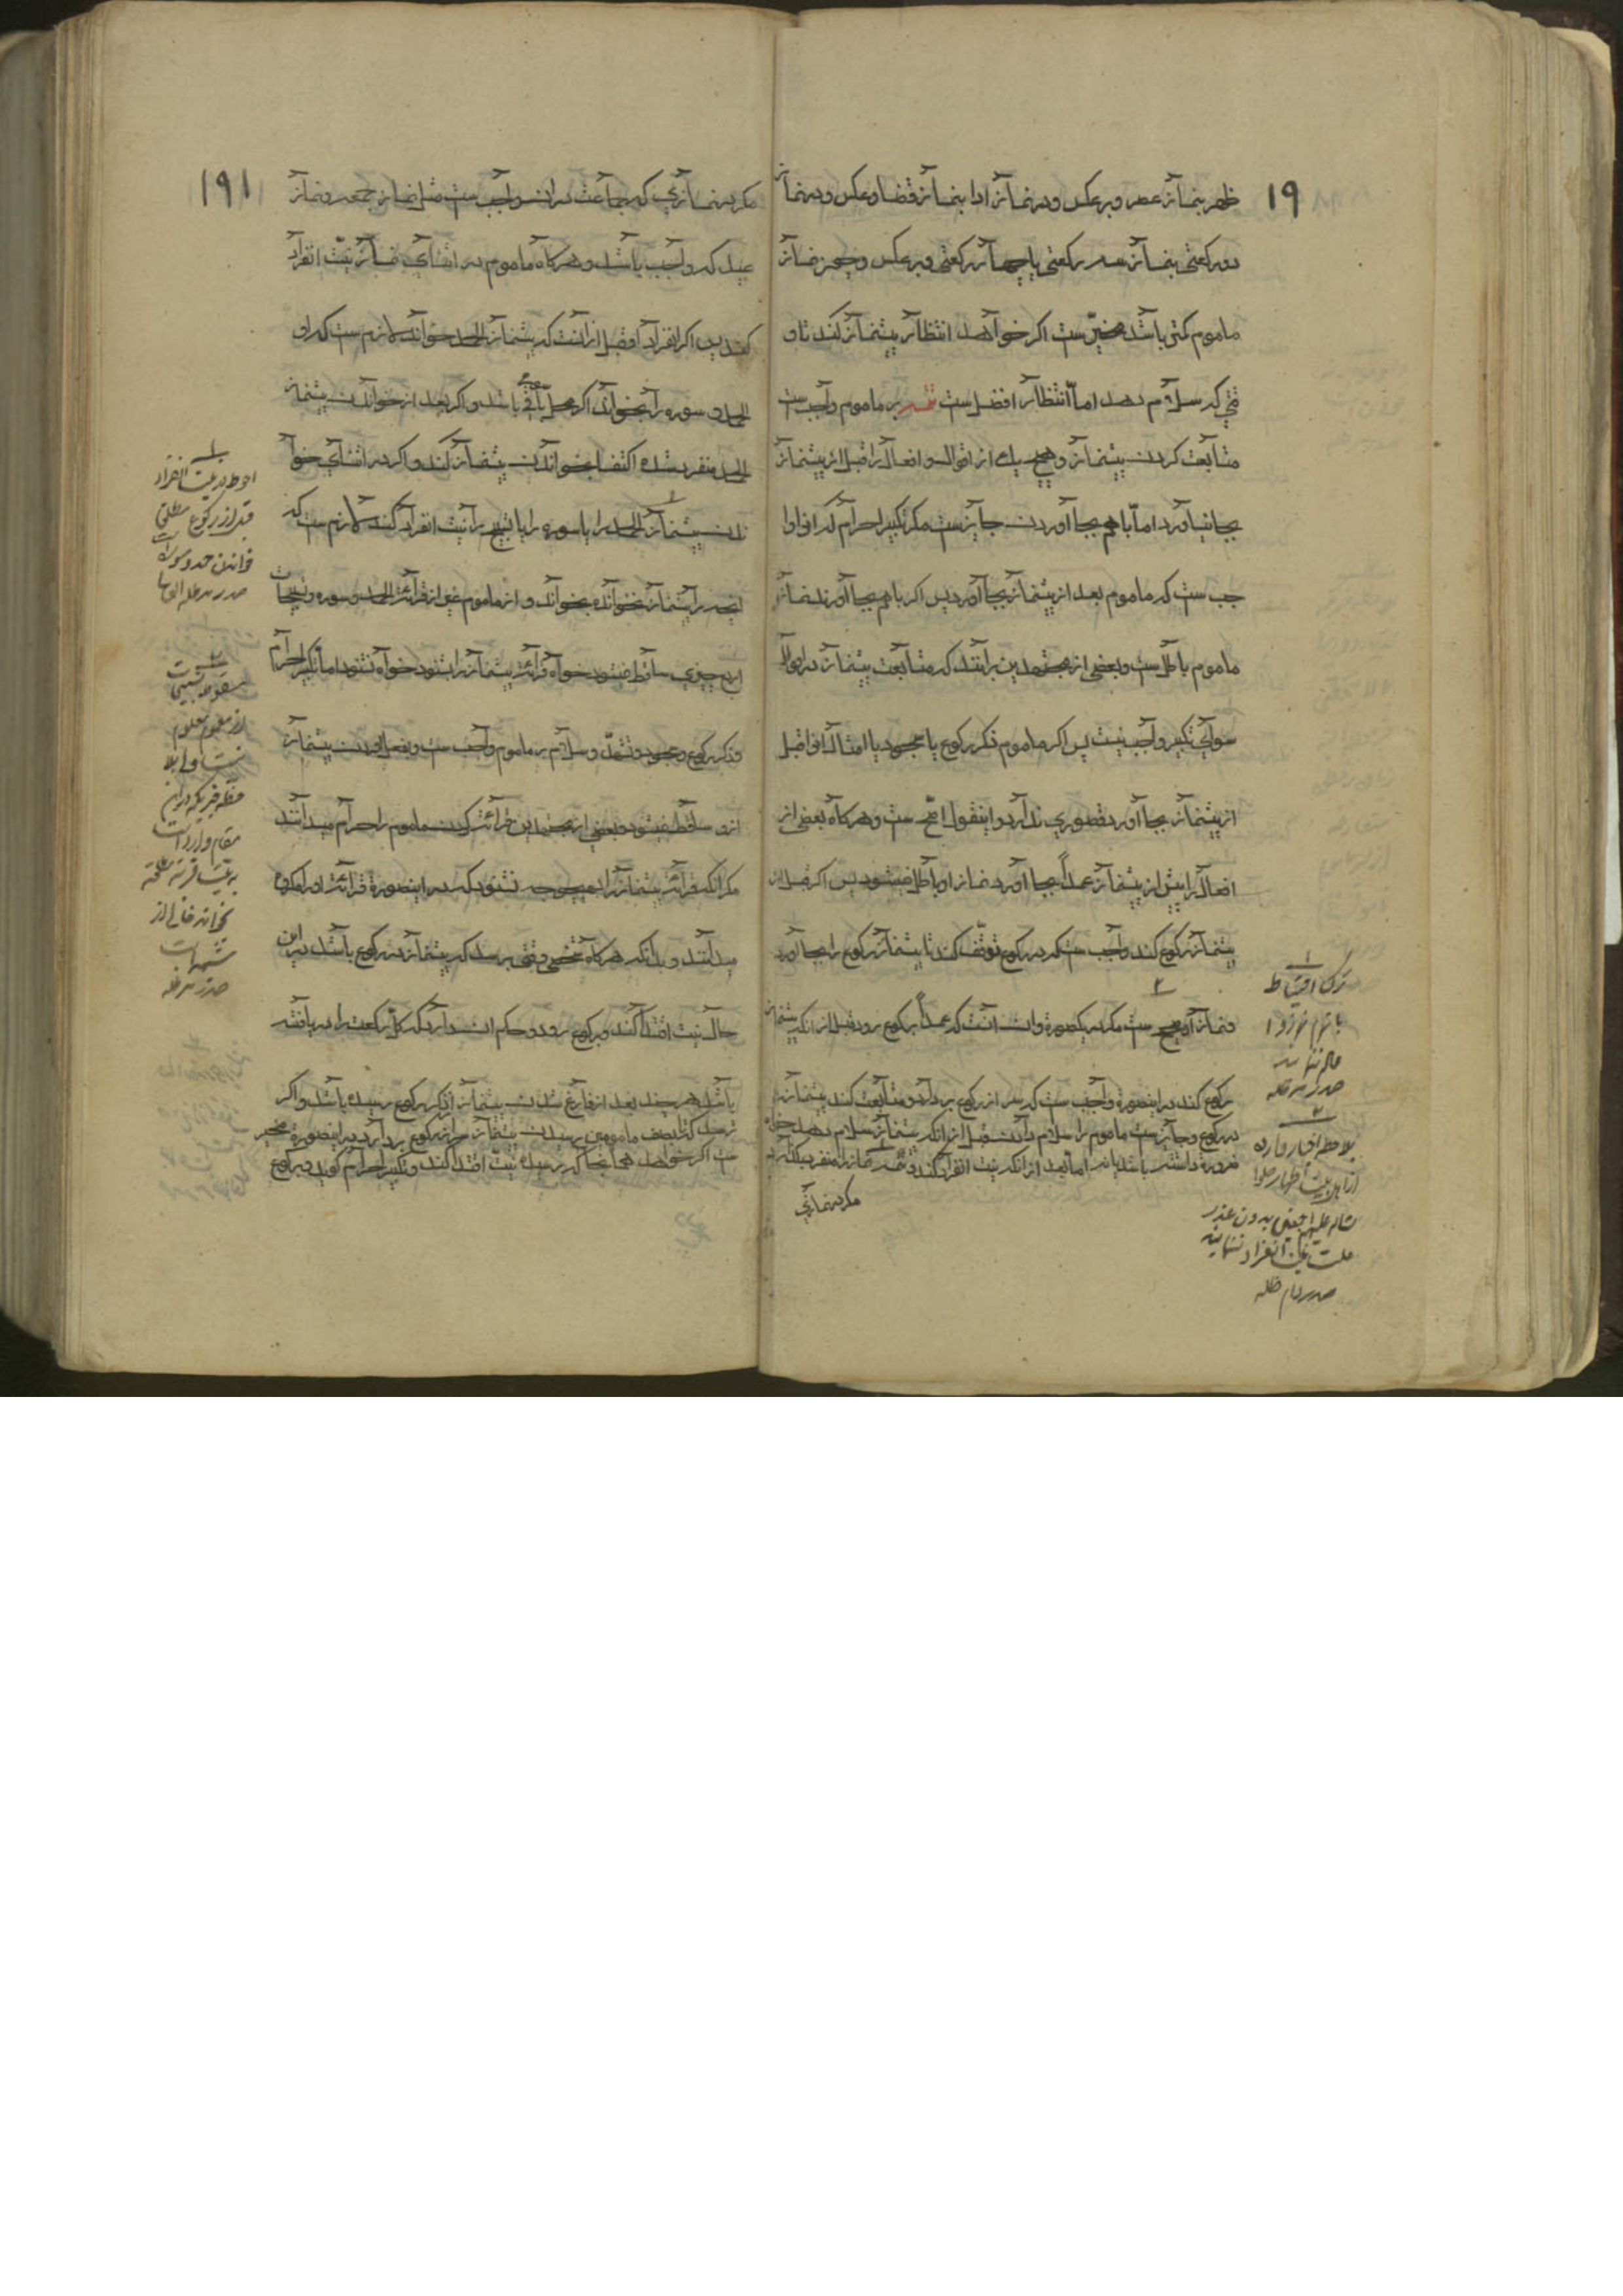 ۱۹
ظهر بنماز عصر و بر عکس و در نماز ادا بنماز قضا و عکس و در نماز
دو رکعتی بنماز سه رکعتی یا چهار رکعتی و بر عکس و چون نماز
ماموم کمتر باشد مخیر ست اگر خواهد انتظار پیشنماز کند تا و
قتی که سلام دهد اما انتظار افضل ست تتمه بر ماموم واجب ست
متابعت کردن پیشنماز و هیچ یک از اقوال و افعال را قبل از پیشنماز
بجا نیاورد اما با هم بجا آوردن جایز ست مگر تکبیر احرام که او را وا
جب ست که ماموم بعد از پیشنماز بجا آورد پس اگر با هم بجا آورند نماز
ماموم باطل ست و بعضی از مجتهدین برآنند که متابعت پیشنماز در اقوال
سوای تکبیر واجب نیست پس اگر ماموم ذکر رکوع یا سجود یا امثال آنرا قبل
از پیشنماز بجا آورد قصوری ندارد و اینقول اصح ست و هر گاه بعضی از
افعال را پیش از پیشنماز عمداً بجا آورد نماز او باطل میشود پس اگر قبل از
پیشنماز رکوع کند واجب ست که در رکوع توقف کند تا پیشنماز رکوع را بجا آورد
و نماز او صحیح ست مگر در یکصورة و آن آنست که عمداً برکوع رود قبل از آنکه پیشنماز
رکوع کند در اینصورة واجب ست که سر از رکوع بردارد و متابعت کند پیشنماز را
در رکوع و جایز ست ماموم را سلام دادن قبل از آنکه پیشنماز سلام دهد خواه
ضرورة داشته باشد یا نه اما بعد از آنکه نیت انفراد کند و تتمه نماز را منفرد بگذارد
مگر در نمازی
۱
ترک احتیاط
صدر مد ظله
۲
بملاحظه اخبار وارده
بدون عذر
صدر دام ظله
۱۹۱
مگر در نمازی که جماعت در آن واجب ست مثل نماز جمعه و نماز
عید که واجب باشد و هر گاه ماموم در اثنای نماز نیت انفراد
کند پس اگر انفراد او قبل از آنست که پیشنماز الحمد خواند لازم ست که او
الحمد و سوره را بخواند اگر محل باقی باشد و اگر بعد از خواندن پیشنماز
الحمد منفرد شده اکتفا بخواندن پیشنماز کند و اگر در اثنای خوا
ندن پیشنماز الحمد را یا سوره را یا تسبیح را نیت انفراد کند لازم ست که
آنچه را پیشنماز نخوانده بخواند و از ماموم غیر از قرائت الحمد و سوره و تسبیحات
اربع چیزی ساقط نمیشود خواه قرائت پیشنماز را بشنود خواه نشنود اما تکبیر احرام
و ذکر رکوع و سجود و تشهد و سلام بر ماموم واجب ست و بفعل آوردن پیشنماز
از و ساقط نمیشود و بعضی از مجتهدین قرائت کردن ماموم را حرام میدانند
مگر آنکه قرائت پیشنماز را بهیچوجه نشنود که در اینصورة قرائت او را مکروه
میدانند و بدانکه هر گاه شخصی وقتی برسد که پیشنماز در رکوع باشد در این
حال نیت اقتدا کند و برکوع رود و حکم آن دارد که کل رکعت را دریافته
باشد هر چند بعد از فارغ شدن پیشنماز از ذکر رکوع رسیده باشد و اگر
ترسد که تا بصف مامومین رسیدن پیشنماز سر از رکوع بردارد در اینصورة مخیر
ست اگر خواهد همانجا که رسیده نیت اقتدا کند و تکبیر احرام گوید و برکوع
۱
احوط در نیت انفراد
قبل از رکوع مطلقا
خواندن حمد و سوره است
صدر مد ظله العالی
۲
صدر مد ظله